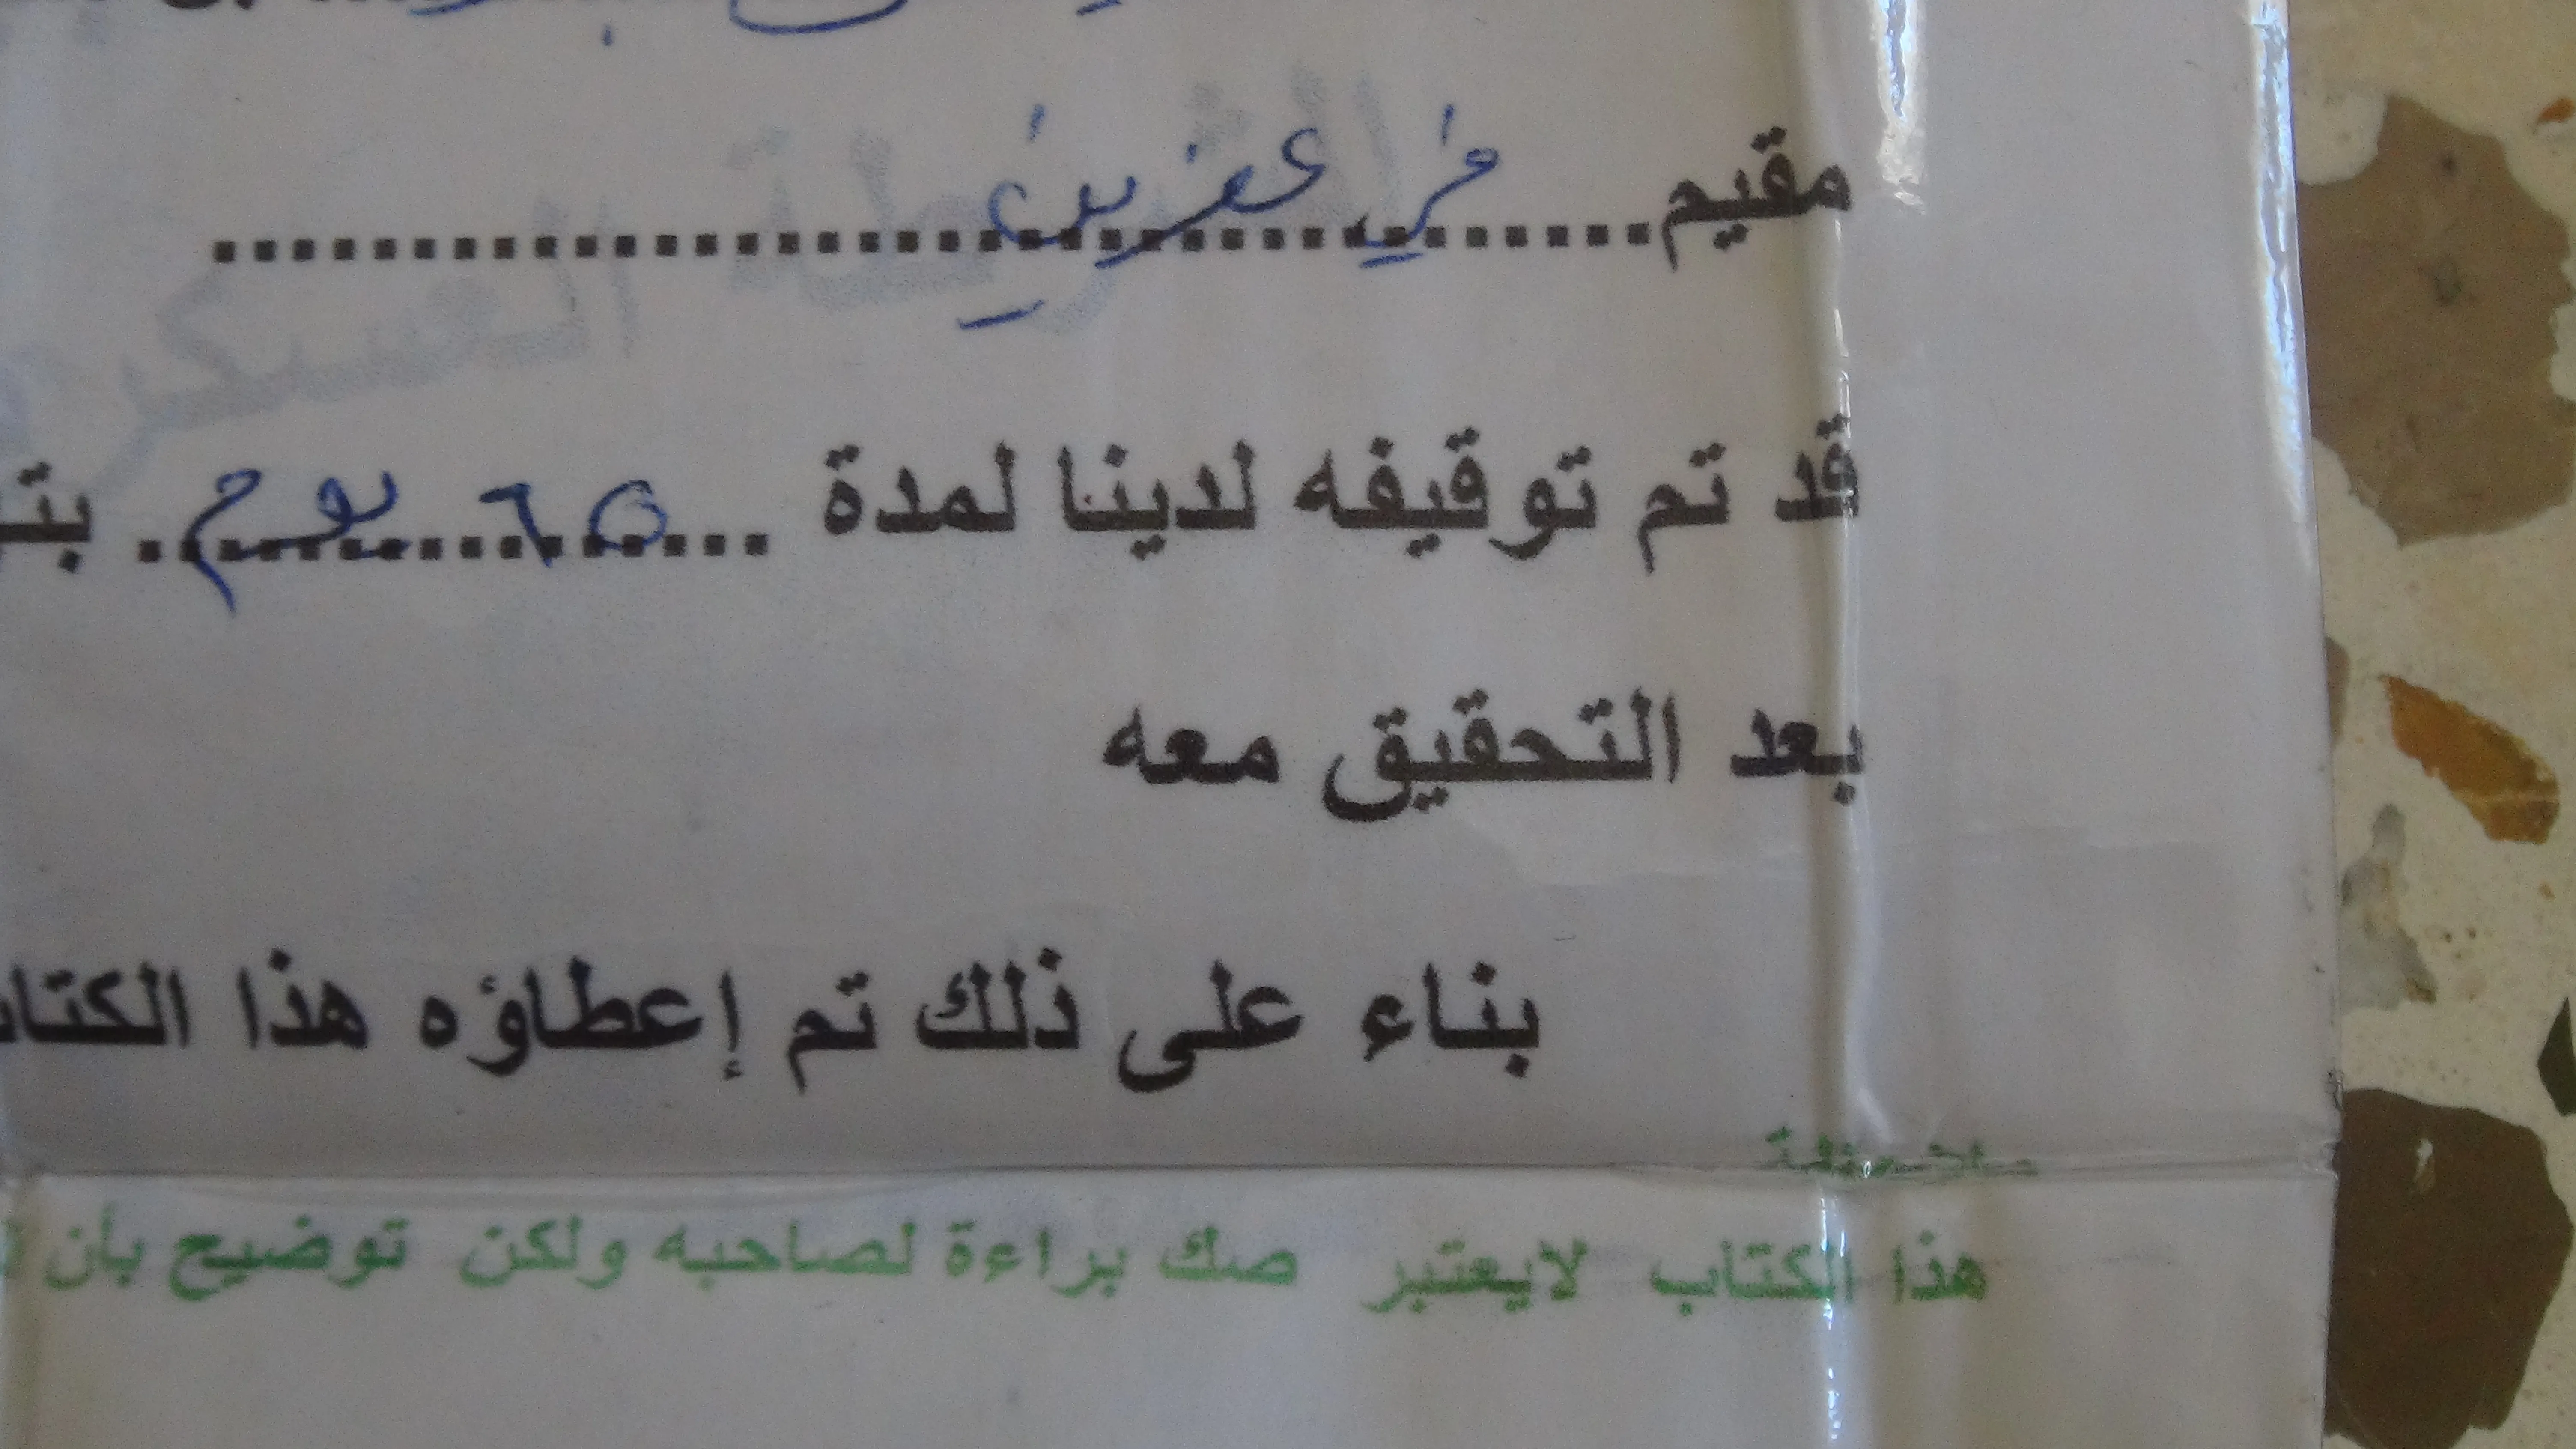 مقيم.......في عفرين.......
قد تم توقيفه لدينا لمدة ...٦٥ يوم... بتـ
بعد التحقيق معه
بناء على ذلك تم إعطاؤه هذا الكتاب
ملاحظة
هذا الكتاب لايعتبر صك براءة لصاحبه ولكن توضيح بأن